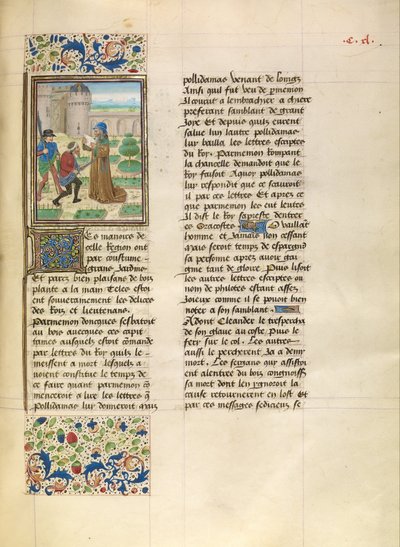 .C. xl.
Les manoirs de
celle Region ont
par coustume
grans Jardins
Et parez bien plaisans de bois
plante a la main / Telz estoi
ent souverainement les delices
des Rois et lieutenans.
Parmenion doncques sesbatoit
au bois avecques ces capi
taines ausquelz estoit comande
par lettres du Roy quilz le
meissent a mort lesquelz a
voient constitue le temps de
ce faire quant parmenion com
menceroit a lire les lettres que
Pollidamas luy donneroit / mais
pollidamas venant de loingz
Ainsi quil fut veu de parmenion
Il courut a lembrachier a chiere
preferant samblant de grant
Joye Et depuis quilz eurent
salue lun lautre pollidamas
luy bailla les lettres escriptes
du Roy. Parmenion Rompant
la chancelle demandoit que le
Roy faisoit A quoy pollidamas
luy respondit que ce scauroit
il par ces lettres Et apres ce
que parmenion les eut leutes
Il dist le Roy sapreste dentrer
es Oracostes O vaillant
homme et Jamais non cessant
mais seroit temps de espargnier
sa personne apres avoir gai
gnie tant de gloire Puis lisoit
les autres lettres escriptes ou
nom de philotes estant assez
Joieux comme il se povoit bien
noter a son samblant.
Adont Cleander le trespercha
de son glaive au coste / Puis le
fery sur le col. Les autres
aussi le percherent Ja a demy
mort. Les sergans qui assistoient
ent alentree du bois congnoissans
sa mort dont ilz ygnoroient la
cause retournerent en lost Et
par ces messages sedicieux se